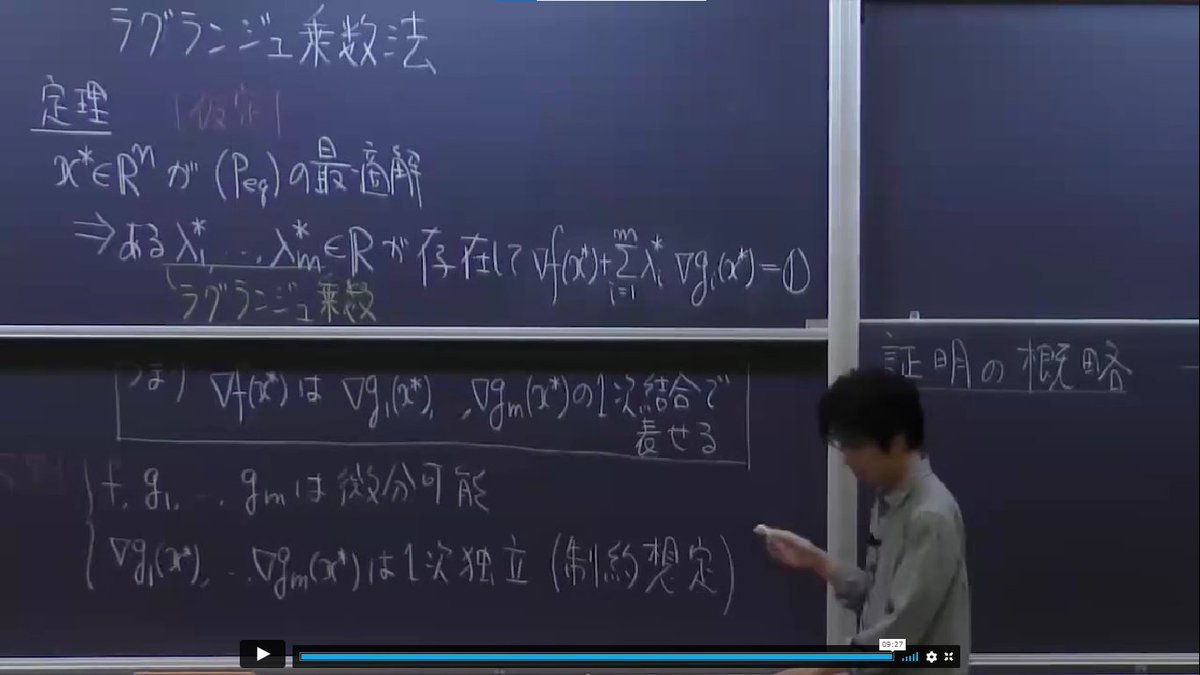 ラグランジュ乗数法
定理 [仮定]
x*∈Rⁿ が (Peq) の最適解
⇒ある λ₁*, …, λₘ*∈R が存在して ∇f(x*)+∑ᵢ₌₁ᵐ λᵢ*∇gᵢ(x*)=0
ラグランジュ乗数
つまり ∇f(x*) は ∇g₁(x*), , ∇gₘ(x*)の1次結合で
表せる
f, g₁, …, gₘ は微分可能
∇g₁(x*), …∇gₘ(x*)は1次独立 (制約想定)
証明の概略
09:27